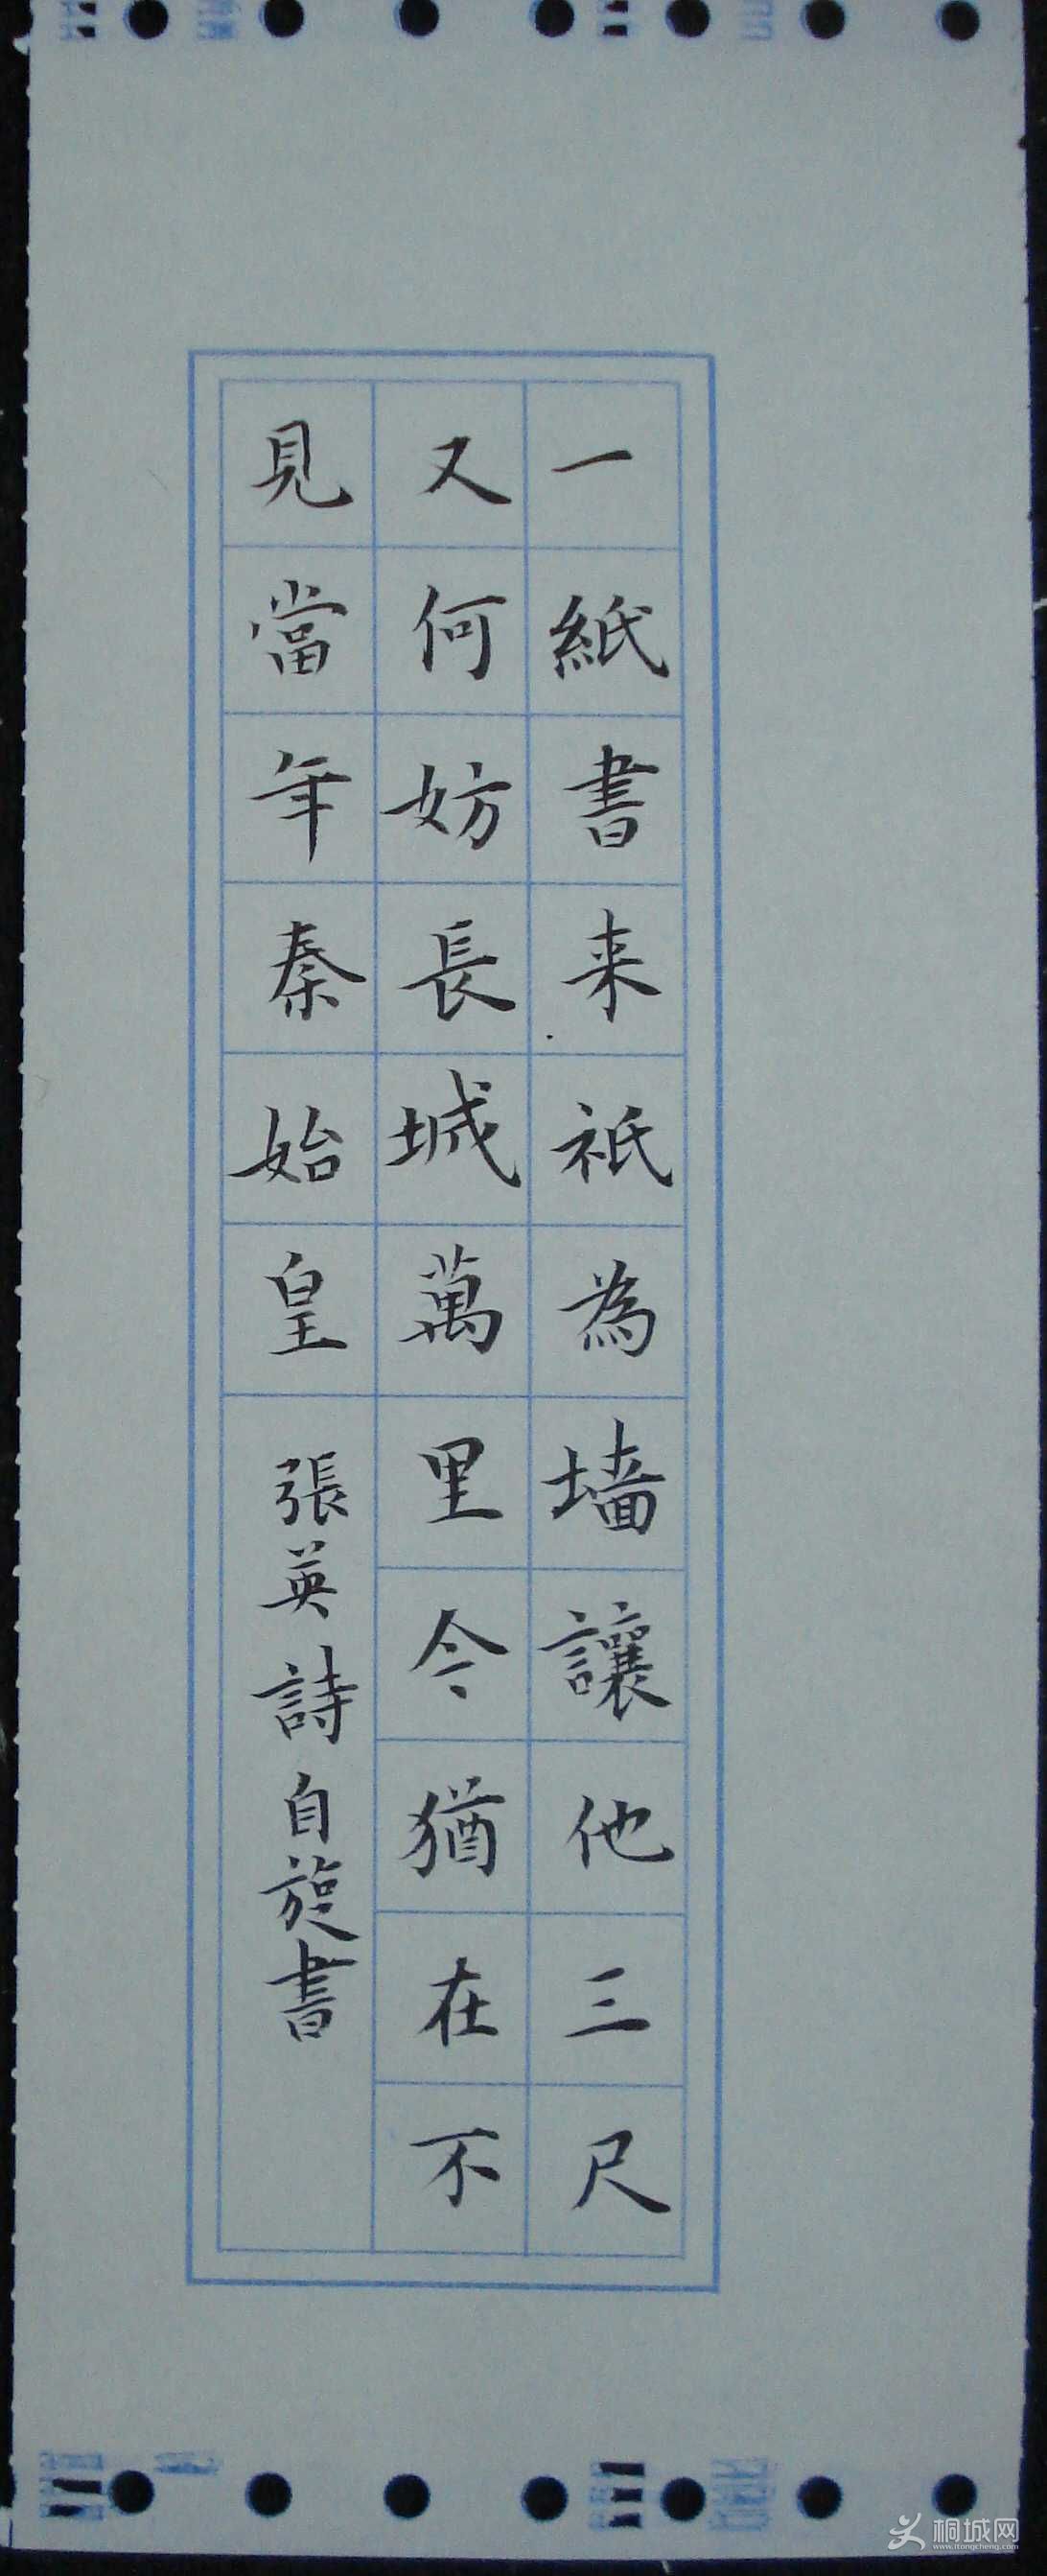 一紙書来祇為墻讓他三尺
又何妨長城萬里今猶在不
見當年秦始皇
張英詩自旋書
桐城网
www.itongcheng.com